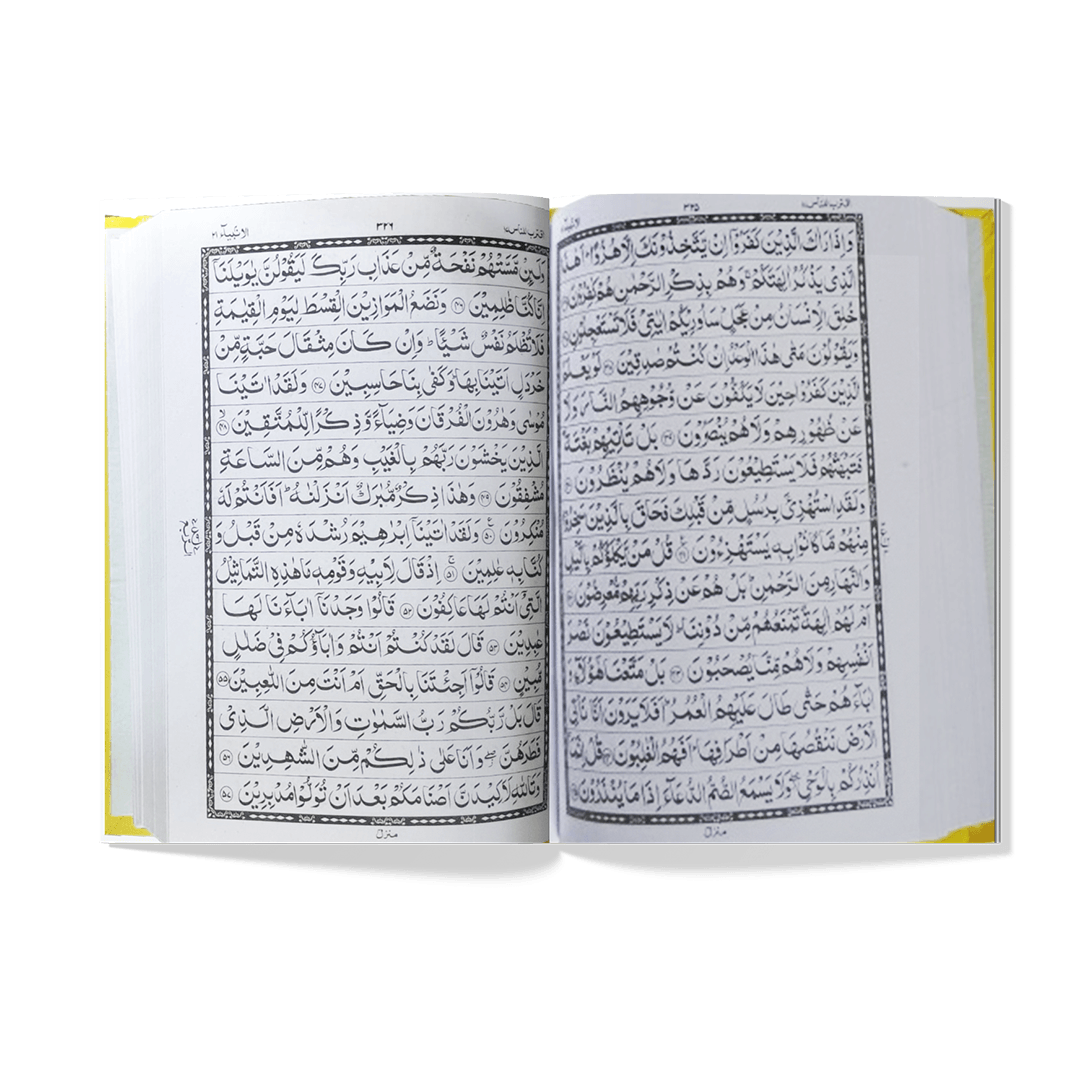 اقترب للناس ١٧ ٣٢٥
وَاِذَا رَاٰكَ الَّذِيْنَ كَفَرُوْٓا اِنْ يَّتَّخِذُوْنَكَ اِلَّا هُزُوًا ؕ اَهٰذَا
الَّذِيْ يَذْكُرُ اٰلِهَتَكُمْ ۚ وَهُمْ بِذِكْرِ الرَّحْمٰنِ هُمْ كٰفِرُوْنَ
خُلِقَ الْاِنْسَانُ مِنْ عَجَلٍ ؕ سَاُورِيْكُمْ اٰيٰتِيْ فَلَا تَسْتَعْجِلُوْنِ
وَيَقُوْلُوْنَ مَتٰى هٰذَا الْوَعْدُ اِنْ كُنْتُمْ صٰدِقِيْنَ ۝٣٨ لَوْ يَعْلَمُ
الَّذِيْنَ كَفَرُوْا حِيْنَ لَا يَكُفُّوْنَ عَنْ وُّجُوْهِهِمُ النَّارَ وَلَا
عَنْ ظُهُوْرِهِمْ وَلَا هُمْ يُنْصَرُوْنَ ۝٣٩ بَلْ تَاْتِيْهِمْ بَغْتَةً
فَتَبْهَتُهُمْ فَلَا يَسْتَطِيْعُوْنَ رَدَّهَا وَلَا هُمْ يُنْظَرُوْنَ ۝
وَلَقَدِ اسْتُهْزِئَ بِرُسُلٍ مِّنْ قَبْلِكَ فَحَاقَ بِالَّذِيْنَ سَخِرُوْا
مِنْهُمْ مَّا كَانُوْا بِهٖ يَسْتَهْزِءُوْنَ ۝٤١ قُلْ مَنْ يَّكْلَؤُكُمْ بِالَّيْلِ
وَالنَّهَارِ مِنَ الرَّحْمٰنِ ؕ بَلْ هُمْ عَنْ ذِكْرِ رَبِّهِمْ مُّعْرِضُوْنَ ۝
اَمْ لَهُمْ اٰلِهَةٌ تَمْنَعُهُمْ مِّنْ دُوْنِنَا ؕ لَا يَسْتَطِيْعُوْنَ نَصْرَ
اَنْفُسِهِمْ وَلَا هُمْ مِّنَّا يُصْحَبُوْنَ ۝٤٣ بَلْ مَتَّعْنَا هٰٓؤُلَآءِ وَ
اٰبَآءَهُمْ حَتّٰى طَالَ عَلَيْهِمُ الْعُمُرُ ؕ اَفَلَا يَرَوْنَ اَنَّا نَاْتِي
الْاَرْضَ نَنْقُصُهَا مِنْ اَطْرَافِهَا ؕ اَفَهُمُ الْغٰلِبُوْنَ ۝ قُلْ اِنَّمَآ
اُنْذِرُكُمْ بِالْوَحْيِ ۖ وَلَا يَسْمَعُ الصُّمُّ الدُّعَآءَ اِذَا مَا يُنْذَرُوْنَ
منزل
اقترب للناس ١٧ ٣٢٦ الانبيآء ٢١
وَلَئِنْ مَّسَّتْهُمْ نَفْحَةٌ مِّنْ عَذَابِ رَبِّكَ لَيَقُوْلُنَّ يٰوَيْلَنَآ
اِنَّا كُنَّا ظٰلِمِيْنَ ۝٤٦ وَنَضَعُ الْمَوَازِيْنَ الْقِسْطَ لِيَوْمِ الْقِيٰمَةِ
فَلَا تُظْلَمُ نَفْسٌ شَيْـًٔا ؕ وَاِنْ كَانَ مِثْقَالَ حَبَّةٍ مِّنْ
خَرْدَلٍ اَتَيْنَا بِهَا ؕ وَكَفٰى بِنَا حَاسِبِيْنَ ۝٤٧ وَلَقَدْ اٰتَيْنَا
مُوْسٰى وَهٰرُوْنَ الْفُرْقَانَ وَضِيَآءً وَّذِكْرًا لِّلْمُتَّقِيْنَ ۝٤٨
الَّذِيْنَ يَخْشَوْنَ رَبَّهُمْ بِالْغَيْبِ وَهُمْ مِّنَ السَّاعَةِ
مُشْفِقُوْنَ ۝٤٩ وَهٰذَا ذِكْرٌ مُّبٰرَكٌ اَنْزَلْنٰهُ ؕ اَفَاَنْتُمْ لَهٗ
مُنْكِرُوْنَ ۝٥٠ وَلَقَدْ اٰتَيْنَآ اِبْرٰهِيْمَ رُشْدَهٗ مِنْ قَبْلُ وَ
كُنَّا بِهٖ عٰلِمِيْنَ ۝٥١ اِذْ قَالَ لِاَبِيْهِ وَقَوْمِهٖ مَا هٰذِهِ التَّمَاثِيْلُ
الَّتِيْٓ اَنْتُمْ لَهَا عٰكِفُوْنَ ۝٥٢ قَالُوْا وَجَدْنَآ اٰبَآءَنَا لَهَا
عٰبِدِيْنَ ۝٥٣ قَالَ لَقَدْ كُنْتُمْ اَنْتُمْ وَاٰبَآؤُكُمْ فِيْ ضَلٰلٍ
مُّبِيْنٍ ۝٥٤ قَالُوْٓا اَجِئْتَنَا بِالْحَقِّ اَمْ اَنْتَ مِنَ اللّٰعِبِيْنَ ۝٥٥
قَالَ بَلْ رَّبُّكُمْ رَبُّ السَّمٰوٰتِ وَالْاَرْضِ الَّذِيْ
فَطَرَهُنَّ ۖ وَاَنَا عَلٰى ذٰلِكُمْ مِّنَ الشّٰهِدِيْنَ ۝٥٦
وَتَاللّٰهِ لَاَكِيْدَنَّ اَصْنَامَكُمْ بَعْدَ اَنْ تُوَلُّوْا مُدْبِرِيْنَ ۝٥٧
منزل